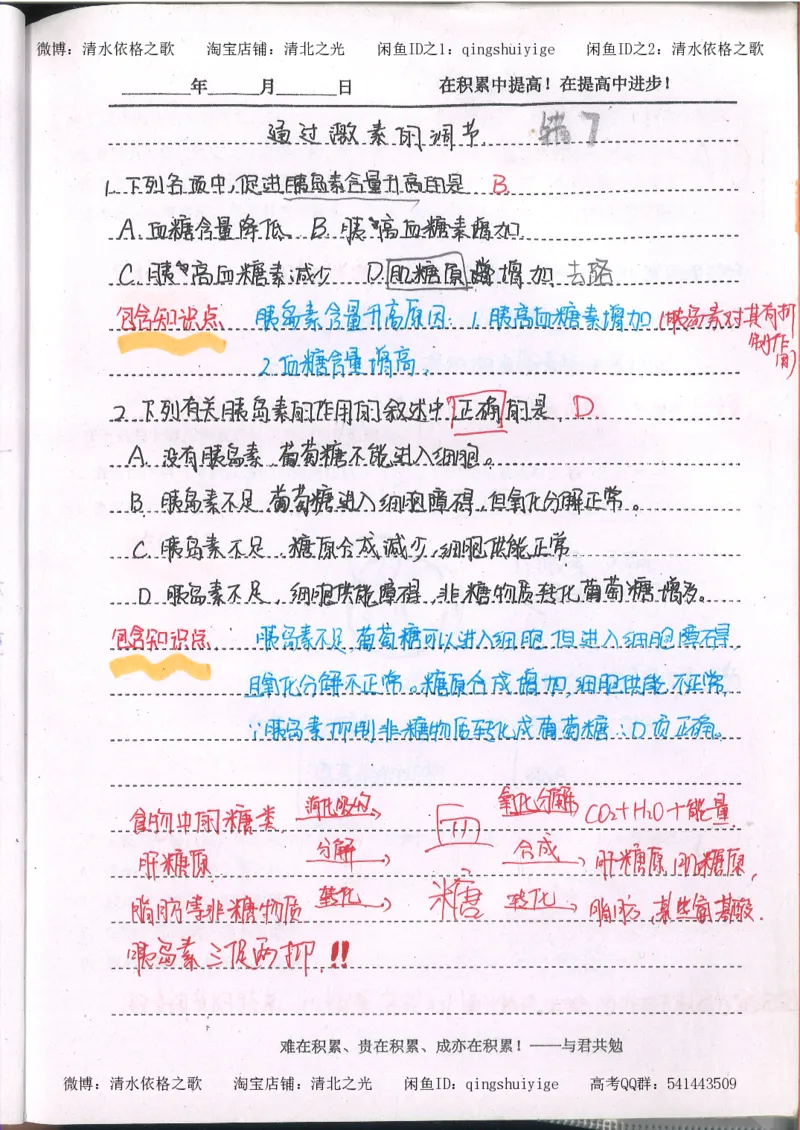 微博：清水依格之歌 淘宝店铺：清北之光 闲鱼ID之1：qingshuiyige 闲鱼ID之2：清水依格之歌
年 月 日 在积累中提高！在提高中进步！
通过激素的调节 错了
1.下列各项中,促进胰岛素含量升高的是 B
A.血糖含量降低 B.胰高血糖素增加
C.胰高血糖素减少 D.肌糖原增加 去路
包含知识点 胰岛素含量升高原因：1.胰高血糖素增加(胰岛素对其有抑
制作用)
2.血糖含量增高.
2.下列有关胰岛素的作用的叙述中正确的是 D
A.没有胰岛素,葡萄糖不能进入细胞。
B.胰岛素不足,葡萄糖进入细胞障碍,但氧化分解正常。
C.胰岛素不足,糖原合成减少,细胞供能正常
D.胰岛素不足,细胞供能障碍,非糖物质转化葡萄糖增多。
包含知识点 胰岛素不足,葡萄糖可以进入细胞但进入细胞障碍,
且氧化分解不正常。糖原合成增加,细胞供能不正常,
∵胰岛素抑制非糖物质转化成葡萄糖∴D项正确。
食物中的糖类 消化吸收→ 血 氧化分解→ CO2+H2O+能量
肝糖原 分解→ 合成→ 肝糖原,肌糖原,
脂肪等非糖物质 转化→ 糖 转化→ 脂肪,某些氨基酸.
胰岛素三促两抑!!
难在积累、贵在积累、成亦在积累！——与君共勉
微博：清水依格之歌 淘宝店铺：清北之光 闲鱼ID：qingshuiyige 高考QQ群：541443509